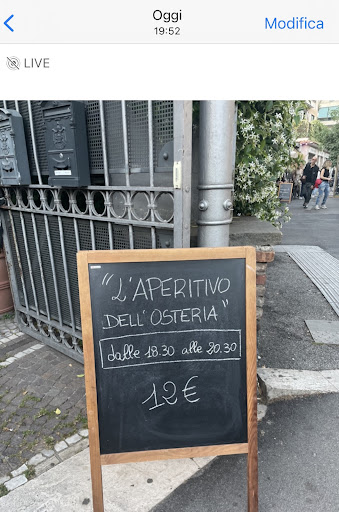 Oggi
19:52
Modifica
LIVE
"L'APERITIVO
DELL'OSTERIA"
dalle 18.30 alle 20.30
12€